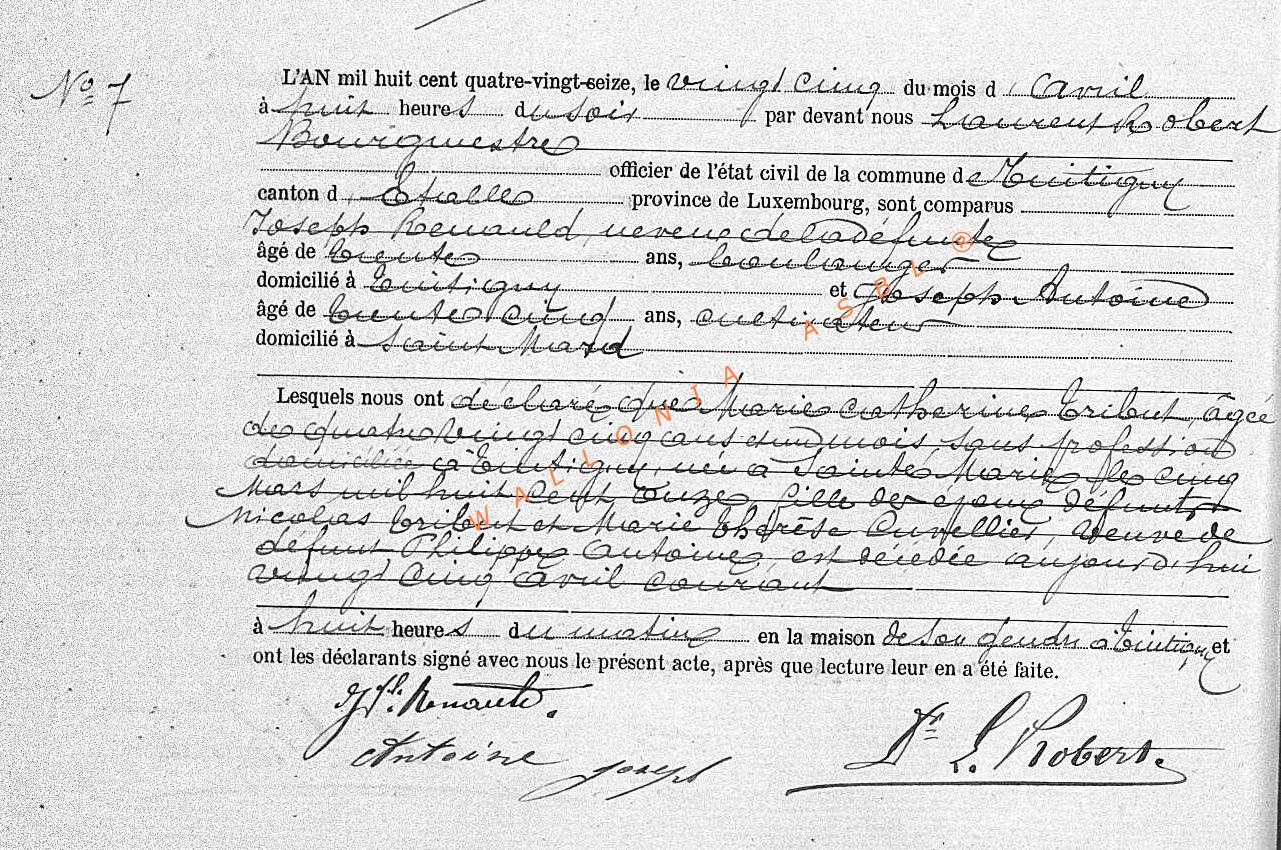 No 7
L'AN mil huit cent quatre-vingt-seize, le vingt cinq du mois d'Avril
à huit heures du soir par devant nous Laurent Robert
Bourgmestre
officier de l'état civil de la commune de Tintigny
canton d'Etalle province de Luxembourg, sont comparus
Joseph Renauld, neveu de la défunte
âgé de trente ans, boulanger
domicilié à Tintigny et Joseph Antoine
âgé de trente cinq ans, cultivateur
domicilié à Saint Mard
Lesquels nous ont déclaré que Marie Catherine Tribut, âgée
de quatre vingt cinq ans et un mois, sans profession
domiciliée à Tintigny, née à Sainte Marie le cinq
Mars mil huit cent onze, fille des époux défunts
Nicolas Tribut et Marie Thérèse Cuvellier, veuve de
défunt Philippe Antoine, est décédée aujourd'hui
vingt cinq avril courant
à huit heures du matin en la maison de son gendre à Tintigny et
ont les déclarants signé avec nous le présent acte, après que lecture leur en a été faite.
Jph. Renauld.
Antoine Joseph
Dr L. Robert.
WALLONIA ASBL ®